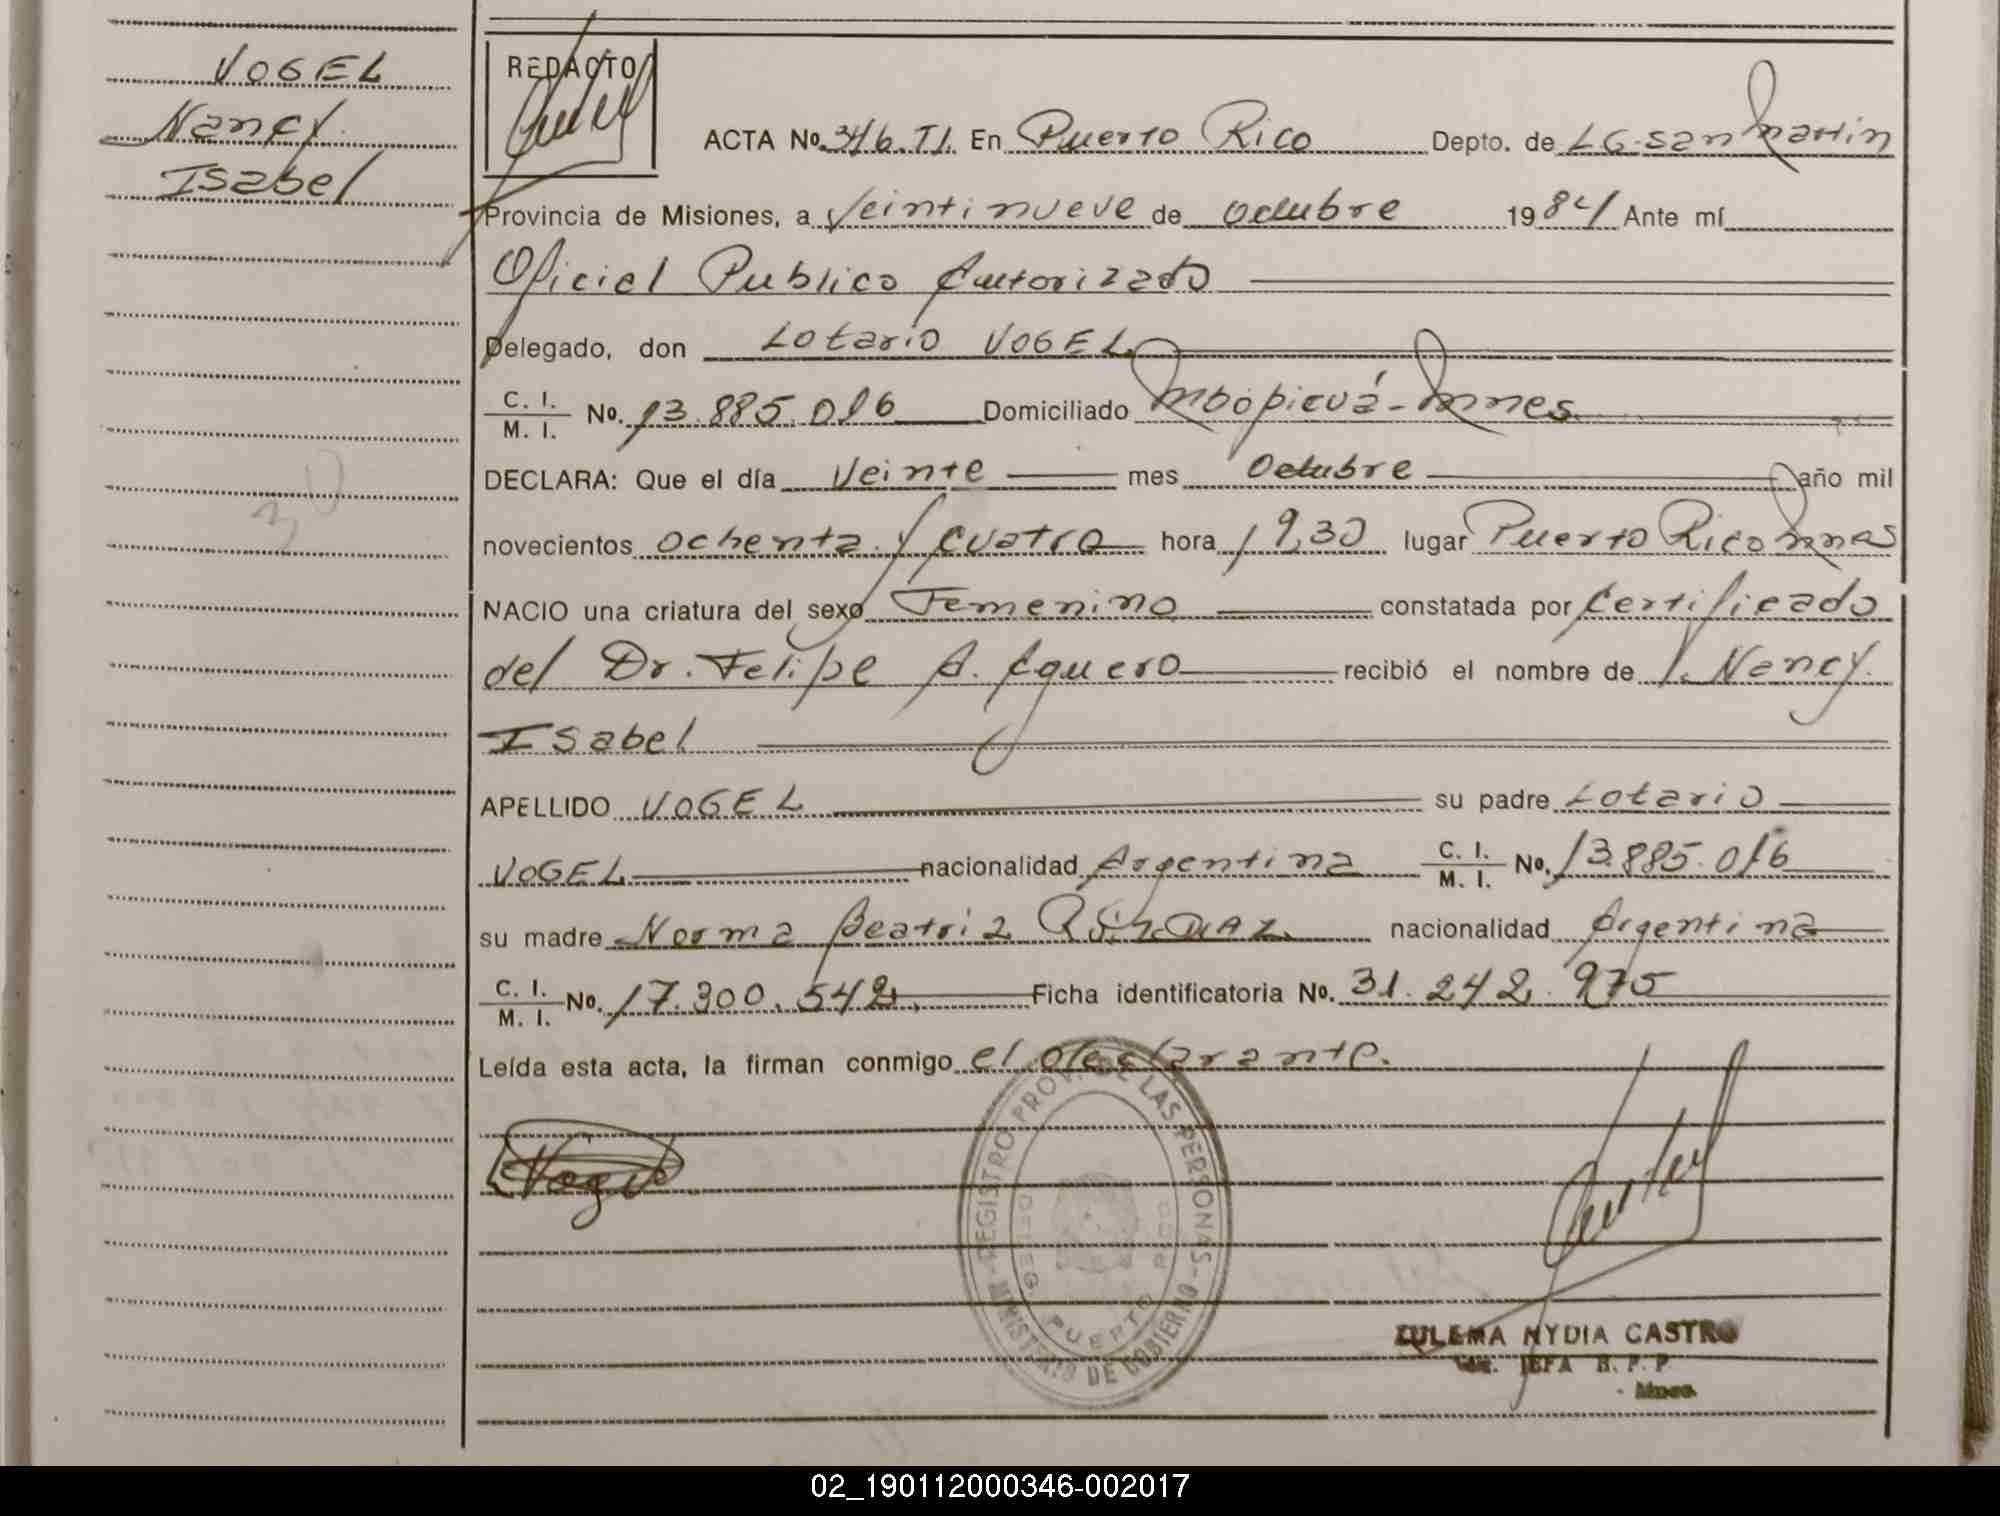 VOGEL
Nancy
Isabel
REDACTO
ACTA No. 346. TI. En Puerto Rico Depto. de L.G. San Martin
Provincia de Misiones, a veintinueve de octubre 1984 Ante mí
Oficial Publico Autorizado
Delegado, don Lotario VOGEL
C. I.
M. I. No. 13.885.016 Domiciliado Mbopicuá - Mnes.
DECLARA: Que el día veinte mes octubre año mil
novecientos ochenta y cuatro hora 19,30 lugar Puerto Rico Mnes
NACIO una criatura del sexo Femenino constatada por Certificado
del Dr. Felipe A. Aguero recibió el nombre de Nancy
Isabel
APELLIDO VOGEL su padre Lotario
VOGEL nacionalidad Argentina C. I.
M. I. No. 13.885.016
su madre Norma Beatriz nacionalidad Argentina
C. I.
M. I. No. 17.300.542 Ficha identificatoria No. 31.242.975
Leída esta acta, la firman conmigo el declarante.
Vogel
REGISTRO PROV. DE LAS PERSONAS - MINISTERIO DE GOBIERNO
DELEG. PUERTO RICO
ZULEMA NYDIA CASTRO
JEFA R. P. P.
Mnes.
02_190112000346-002017